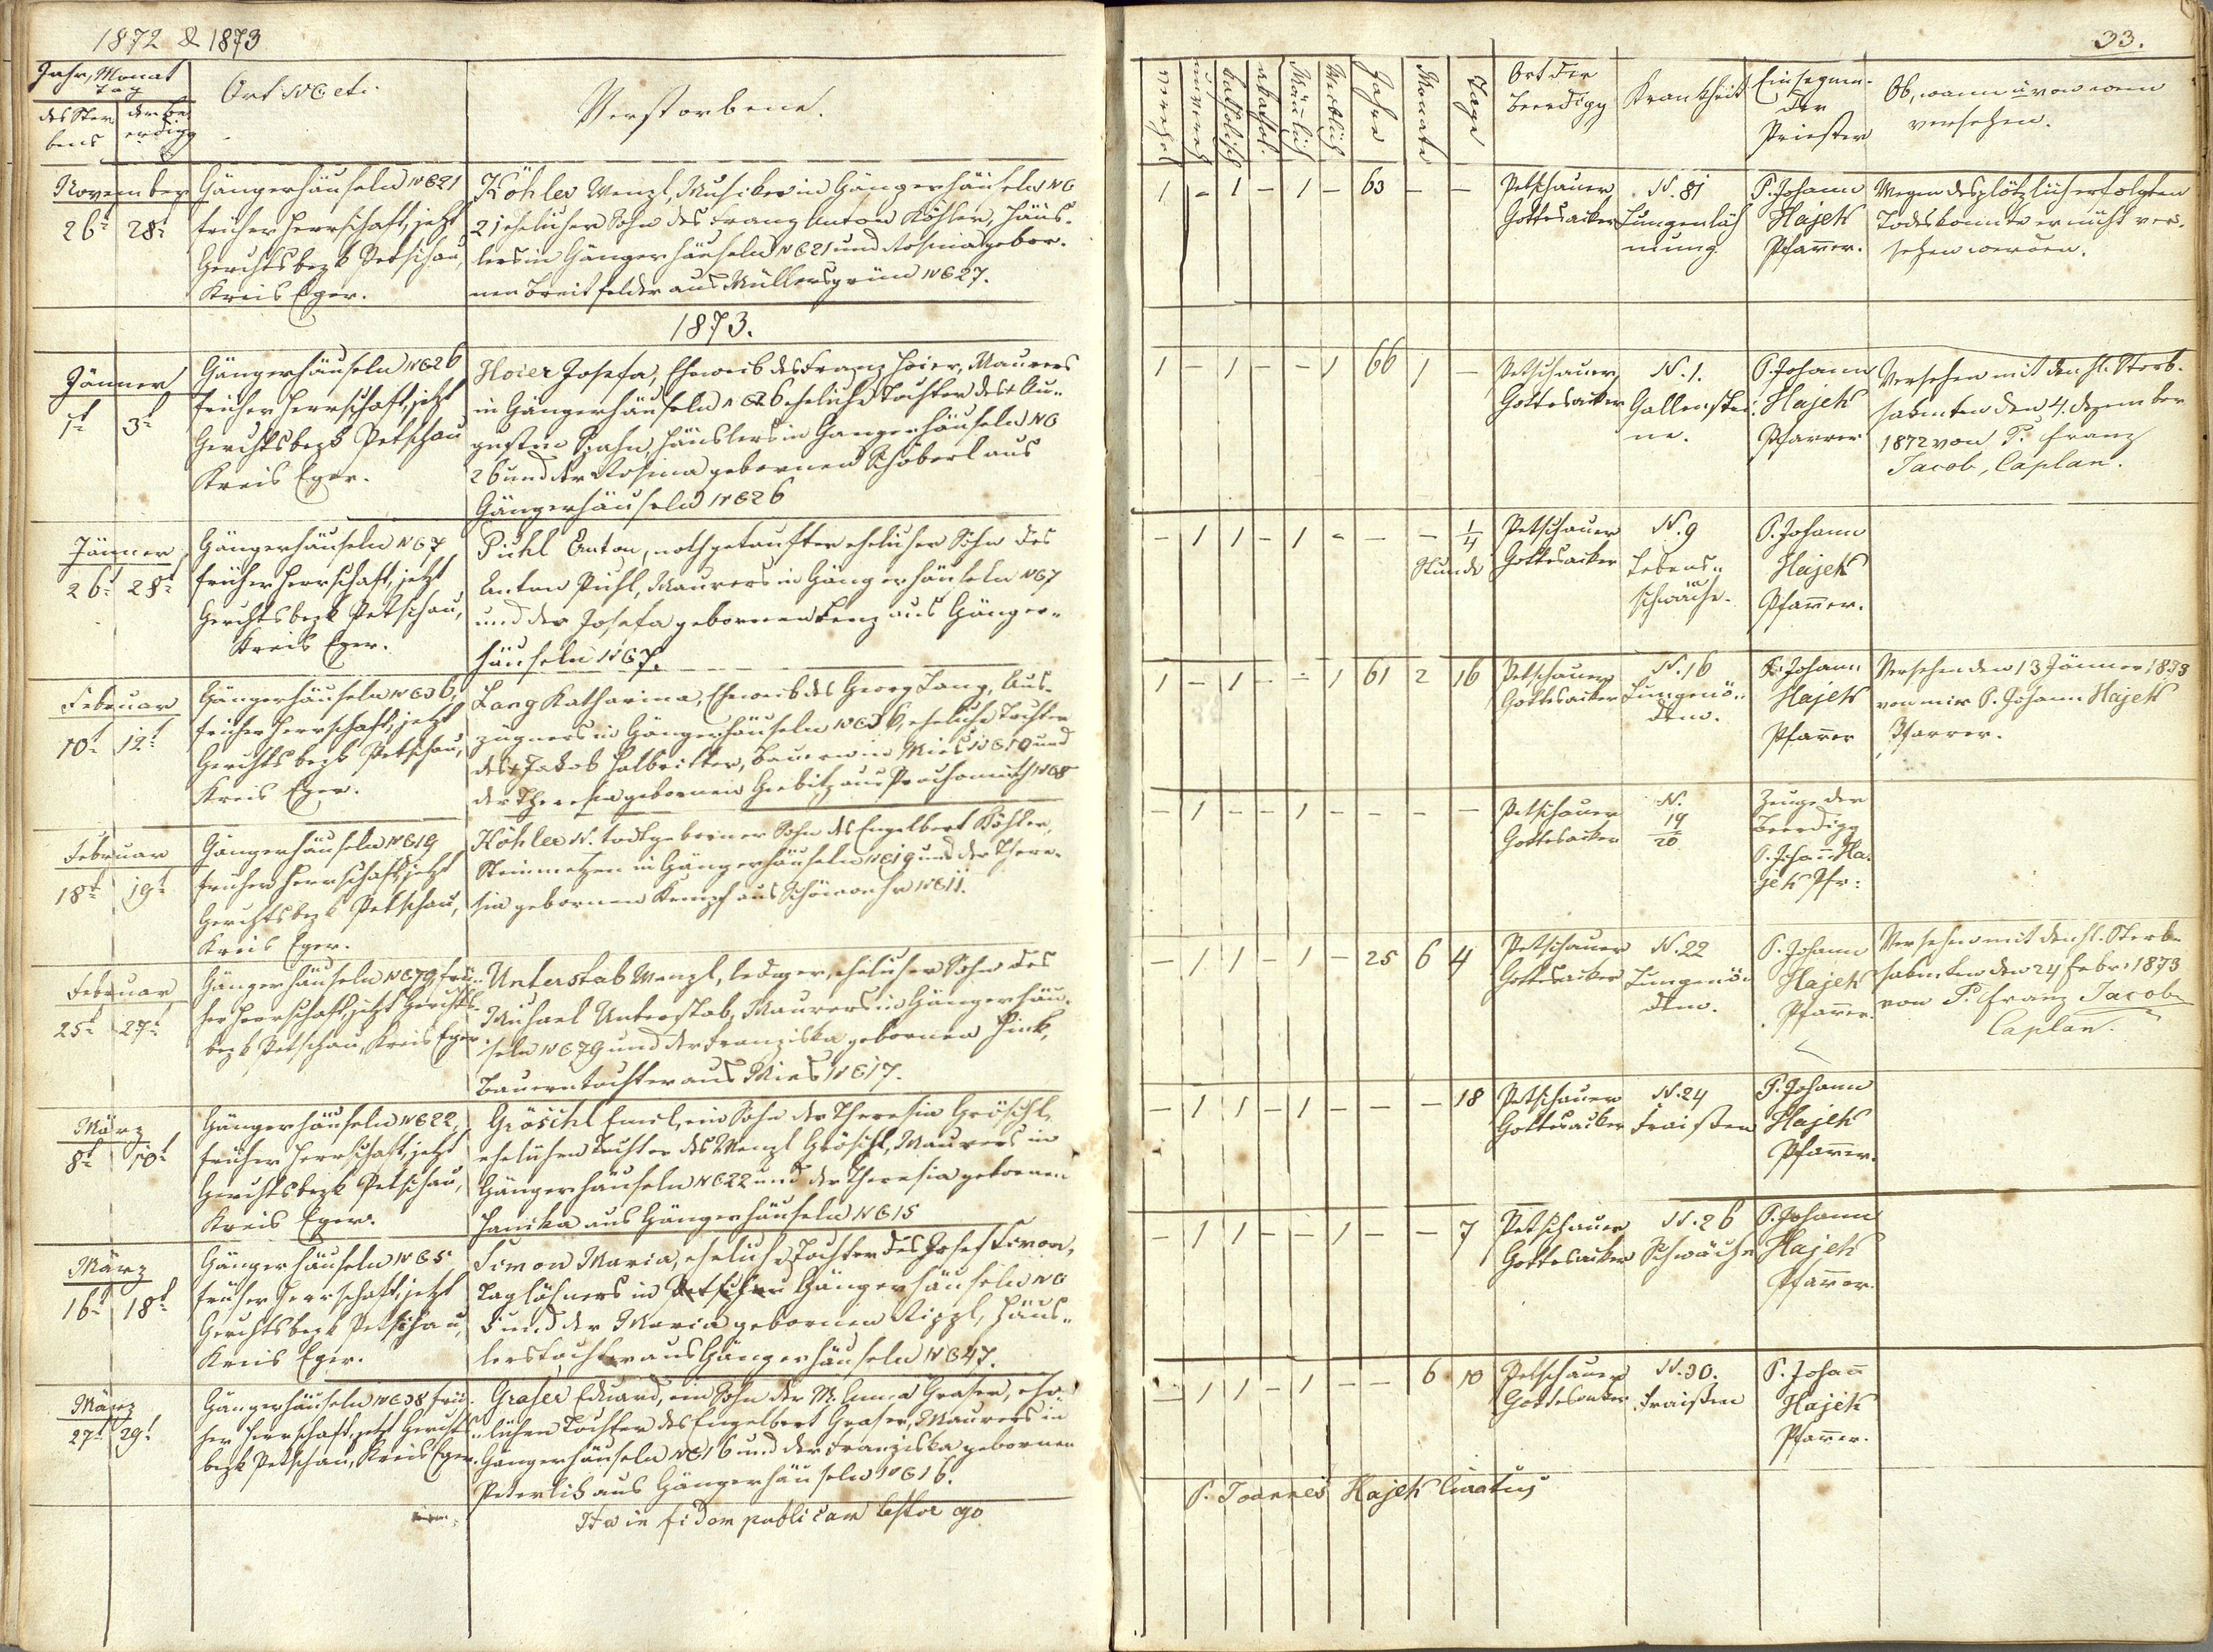 1872 & 1873
33.
Jahr, Monat
Tag
des Ster
bens
der Be
erdigg
Ort NC etc.
Verstorbene.
verehel
unvereh
katholisch
akathol.
Mänlich
Weiblich
Jahre
Monate
Tage
Ort der
Beerdigg
Krankheit
Einsegnen-
der
Priester
Ob, wann u von wem
versehen.
November
26t 28t
Gängerhäuseln NC 21
früher Herrschaft, jetzt
Gerichtsbezk Petschau,
Kreis Eger.
Köhler Wenzl, Musiker in Gängerhäuseln NC
21 ehelicher Sohn des Franz Anton Köhler, Häus-
lers in Gängerhäuseln NC 21 und Rosina gebor-
nen Breitfelder aus Müllersgrün NC 27.
1 - 1 - 1 - 63 - -
Petschauer
Gottesacker
N. 81
Lungenläh
mung.
P. Johann
Hajek
Pfarrer.
Wegen des plötzlich erfolgten
Todes konnte er nicht ver-
sehen werden.
1873.
Jänner
1t 3t
Gängerhäuseln NC 26
früher Herrschaft, jetzt
Gerichtsbezk Petschau
Kreis Eger.
Hoier Josefa, Eheweib des Franz Hoier, Maurers
in Gängerhäuseln NC 26 eheliche Tochter des + Au-
gustin Spahn, Häuslers in Gängerhäuseln NC
26 und der Rosina gebornen Schöberl aus
Gängerhäuseln NC 26
1 - 1 - - 1 66 1 -
Petschauer
Gottesacker
N. 1.
Gallenstei-
ne.
P. Johann
Hajek
Pfarrer
Versehen mit den hl. Sterb-
sakmten den 4. Dezember
1872 von P. Franz
Jacob, Caplan.
Jänner
26t 28t
Gängerhäuseln NC 7
früher Herrschaft, jetzt
Gerichtsbezk Petschau,
Kreis Eger.
Pichl Anton, nothgetaufter ehelicher Sohn des
Anton Pichl, Maurers in Gängerhäuseln NC 7
und der Josefa gebornen Lenz aus Gänger-
häuseln NC 7.
- 1 1 - 1 - - - 1/4
Stunde
Petschauer
Gottesacker
N. 9
Lebens-
schwäche.
P. Johann
Hajek
Pfarrer.
Februar
10t 12t
Gängerhäuseln NC 36,
früher Herrschaft, jetzt
Gerichtsbezk Petschau,
Kreis Eger.
Lang Katharina, Eheweib des Georg Lang, Aus-
zügners in Gängerhäuseln NC 36, eheliche Tochter
des + Jakob Halbritter, Bauern in Mies NC 10 und
der Theresia gebornen Gerbitz aus Prochomuth NC 8
1 - 1 - - 1 61 2 16
Petschauer
Gottesacker
N. 16
Lungenö-
dem.
P. Johann
Hajek
Pfarrer
Versehen den 13 Jänner 1873
von mir P. Johann Hajek
Pfarrer.
Februar
18t 19t
Gängerhäuseln NC 19
früher Herrschaft, jetzt
Gerichtsbezk Petschau,
Kreis Eger.
Köhler N. todtgeborner Sohn des Engelbert Köhler,
Steinmetzen in Gängerhäuseln NC 19 und der There-
sia gebornen Kempf aus Schönwehr NC 11.
- 1 - - 1 - - - -
Petschauer
Gottesacker
N.
19
20
Zeuge der
Beerdigg
P. Johann Ha-
jek Pfr:
Februar
25t 27t
Gängerhäuseln NC 79 frü-
her Herrschaft, jetzt Gerichts-
bezk Petschau, Kreis Eger
Unterstab Wenzl, lediger, ehelicher Sohn des
Michael Unterstab, Maurers in Gängerhäu-
seln NC 79 und der Franziska gebornen Hink,
Bauerntochter aus Mies NC 17.
- 1 1 - 1 - 25 6 4
Petschauer
Gottesacker
N. 22
Lungenö-
dem.
P. Johann
Hajek
Pfarrer.
Versehen mit den hl. Sterb-
sakmten den 24 Febr. 1873
von P. Franz Jacob
Caplan.
März
8t 10t
Gängerhäuseln NC 22,
früher Herrschaft, jetzt
Gerichtsbezk Petschau,
Kreis Eger.
Gröschl Emil, ein Sohn der Theresia Gröschl,
ehelichen Tochter des Wenzl Gröschl, Maurers in
Gängerhäuseln NC 22 und der Theresia gebornen
Hanika aus Gängerhäuseln NC 15
- 1 1 - 1 - - - 18
Petschauer
Gottesacker
N. 24
Fraißen
P. Johann
Hajek
Pfarrer.
März
16t 18t
Gängerhäuseln NC 5
früher Herrschaft, jetzt
Gerichtsbezk Petschau,
Kreis Eger.
Simon Maria, eheliche Tochter des Josef Simon,
Taglöhners in Petschau Gängerhäuseln NC
5 und der Maria gebornen Rippl, Häus-
lerstochter aus Gängerhäuseln NC 47.
- 1 1 - - 1 - - 7
Petschauer
Gottesacker
N. 26
Schwäche
P. Johann
Hajek
Pfarrer.
März
27t 29t
Gängerhäuseln NC 38 frü-
her Herrschaft, jetzt Gerichts
bezk Petschau, Kreis Eger.
Graser Eduard, ein Sohn der M. Anna Graser, ehe-
lichen Tochter des Engelbert Graser, Maurers in
Gängerhäuseln NC 16 und der Franziska gebornen
Peterlik aus Gängerhäuseln NC 16.
- 1 1 - 1 - - 6 10
Petschauer
Gottesacker
N. 30.
Fraißen
P. Johan
Hajek
Pfarrer.
Ita in fidem publicam testor ego
P. Joannes Hajek Curatus